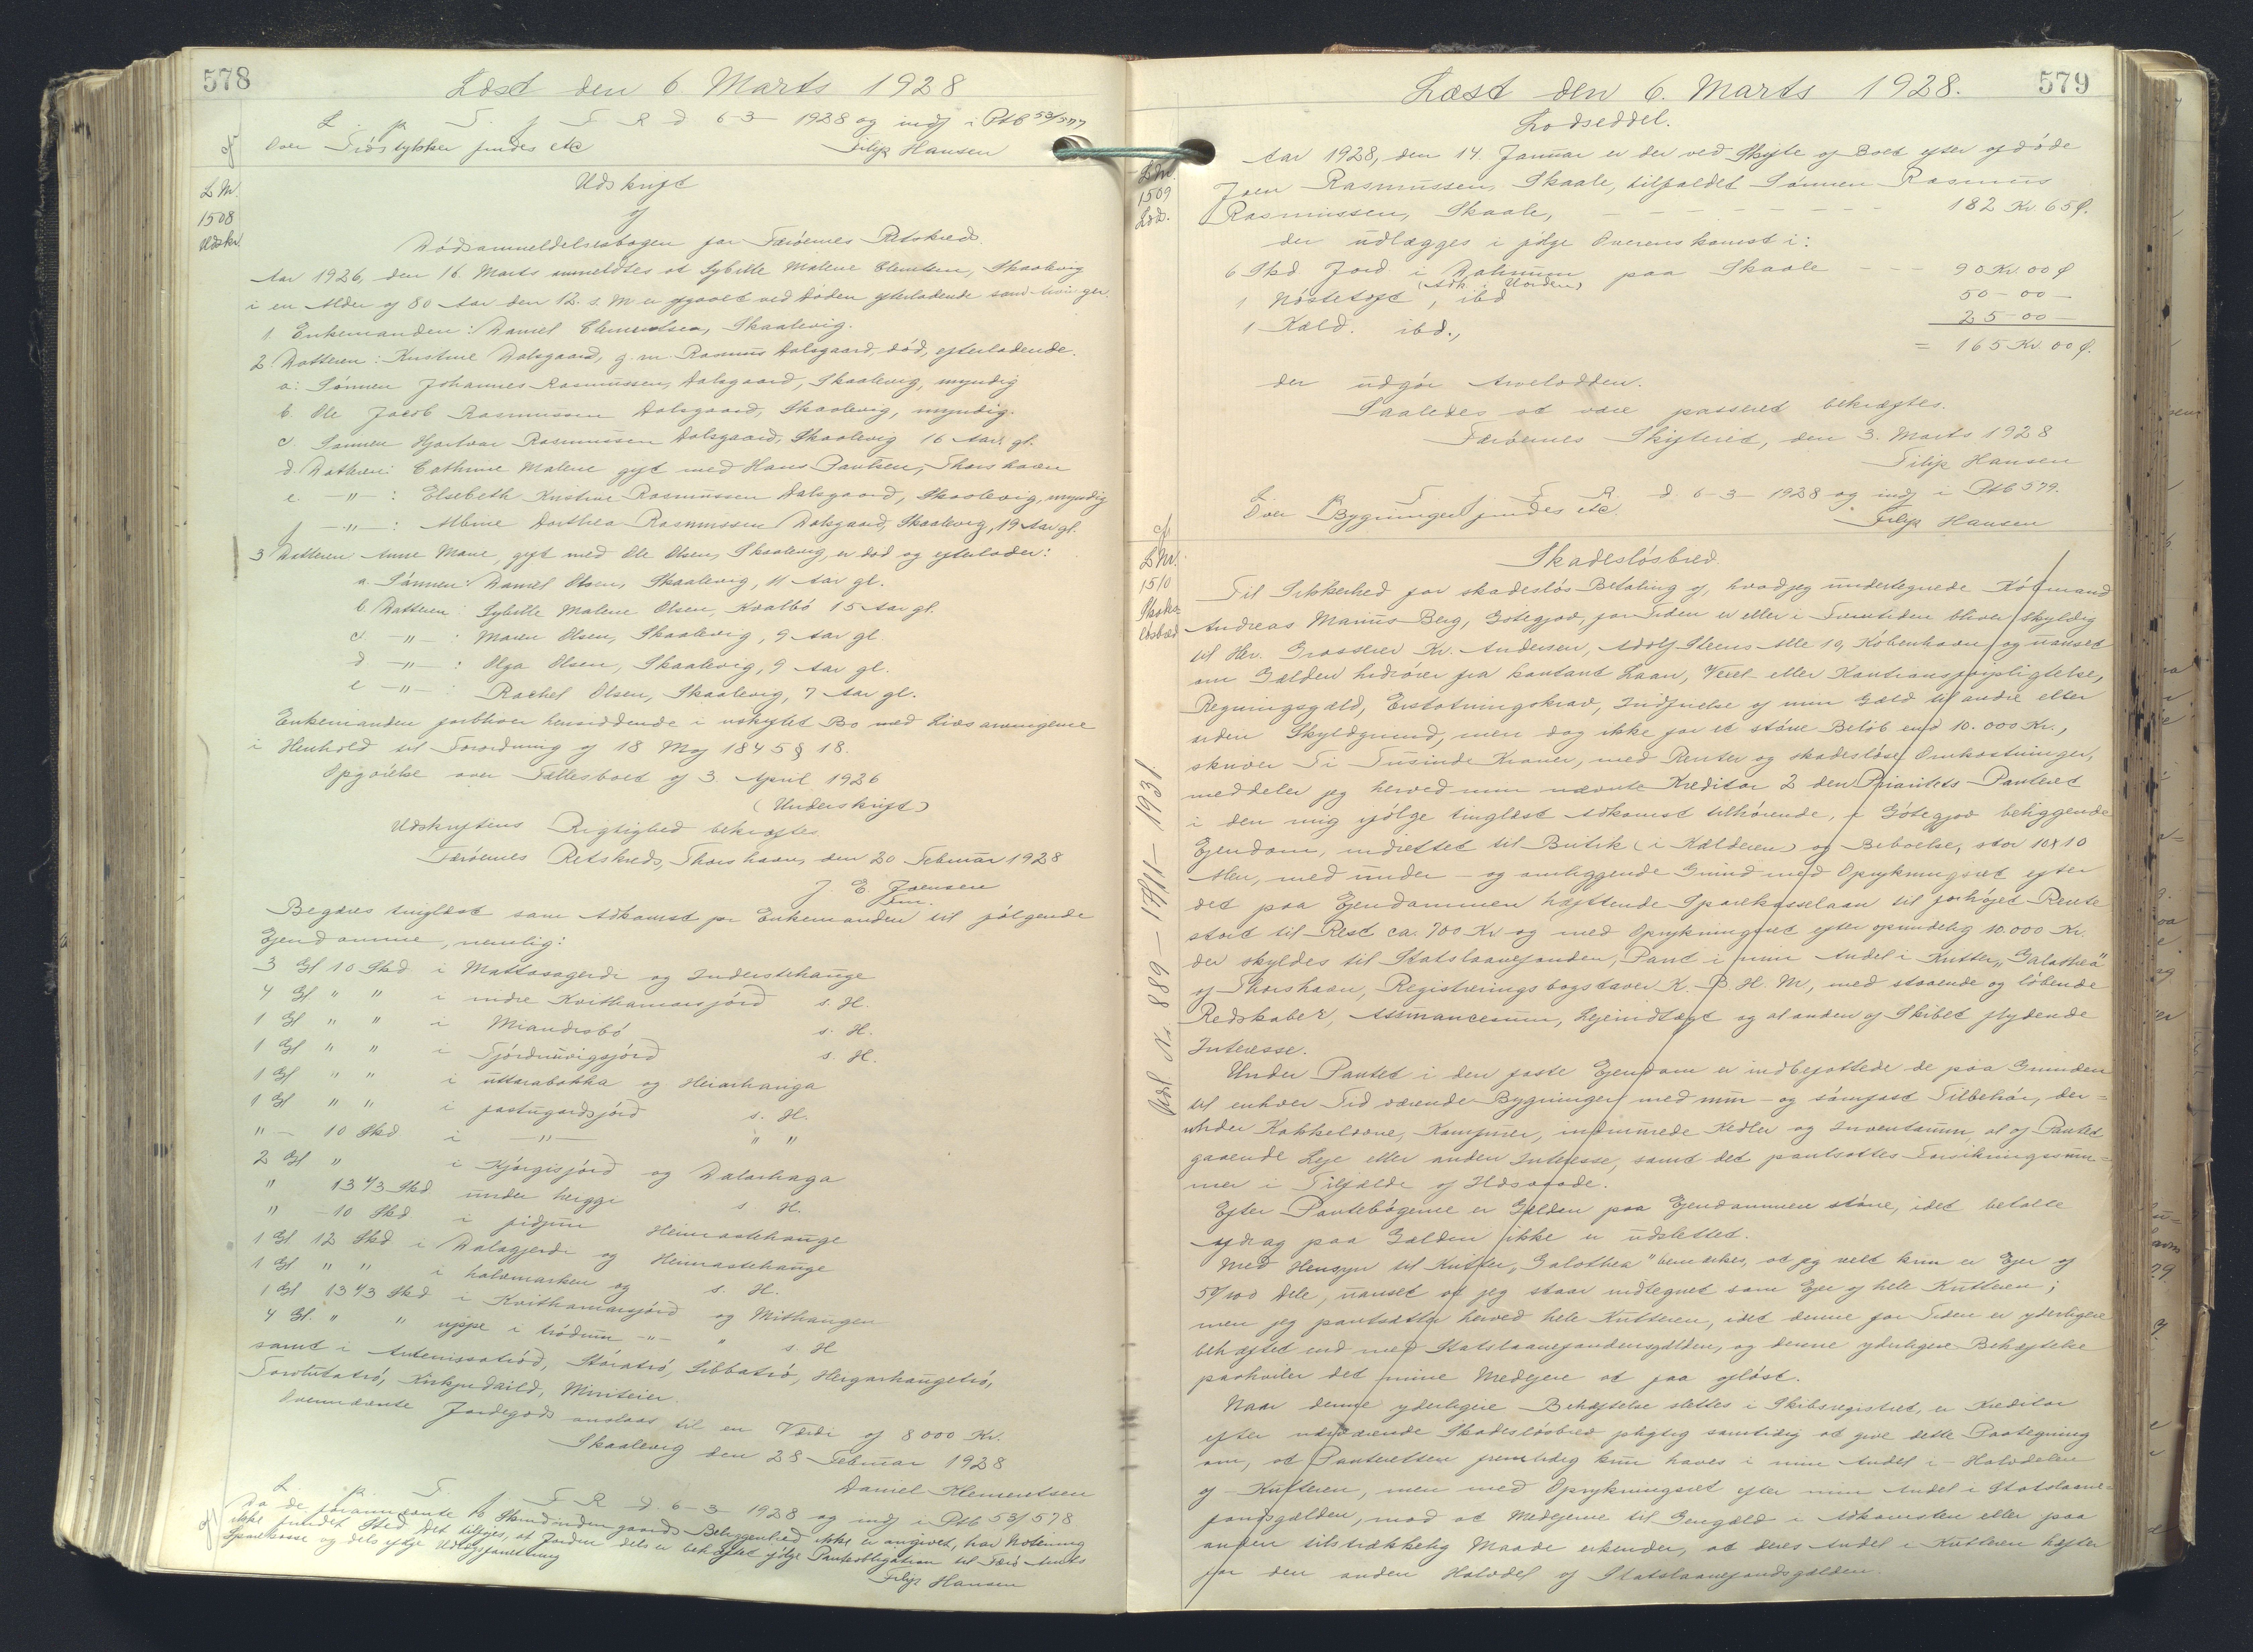 578
Læst den 6. Marts 1928
L. p. T. f. F. R. d. 6-3-1928 og indf i Ptb 53/577
Over Tröstykker findes etc Filip Hansen
L Nr.
1508
Udskr.
Udskrift
af
Dödsanmeldelsesbogen for Færöernes Retskreds.
Aar 1926, den 16. Marts anmeldtes at Sybille Malene Clementsen, Skaalevig
i en Alder af 80 Aar den 12. s. M. er afgaaet ved Döden efterladende som Arvinger.
1. Enkemanden: Daniel Clementsen, Skaalevig.
2. Datteren: Kristine Dalsgaard, g. m. Rasmus Dalsgaard, död, efterladende.
a: Sönnen Johannes Rasmussen Dalsgaard, Skaalevig, myndig
b. Ole Jacob Rasmussen Dalsgaard, Skaalevig, myndig.
c. Sönnen Hjartvar Rasmussen Dalsgaard, Skaalevig 16 Aar gl.
d. Datteren: Cathrine Malene gift med Hans Poulsen, Thorshavn
e -"- : Elsebeth Kristine Rasmussen Dalsgaard, Skaalevig, myndig
f -"- : Albine Dorthea Rasmussen Dalsgaard, Skaalevig, 19 Aar gl.
3 Datteren Anne Marie, gift med Ole Olsen, Skaalevig, er död og efterlader:
a. Sönnen: Daniel Olsen, Skaalevig, 11 Aar gl.
b. Datteren: Sybille Malene Olsen, Kvalbö 15 Aar gl.
c. -"- : Maren Olsen, Skaalevig, 9 Aar gl.
d -"- : Olga Olsen, Skaalevig, 9 Aar gl.
e -"- : Rachel Olsen, Skaalevig, 7 Aar gl.
Enkemanden forbliver hensiddende i uskiftet Bo med Livsarvingerne
i Henhold til Forordning af 18 Maj 1845 § 18.
Opgörelse over Fællesboet af 3. April 1926
(Underskrift)
Udskriftens Rigtighed bekræftes
Færöernes Retskreds, Thorshavn, den 20 Februar 1928
J. E. Joensen
fm.
Begæres tinglæst som Adkomst for Enkemanden til fölgende
Ejendomme, nemlig:
3 Gl 10 Skd i Mattasagerdi og Inderstehauge
4 Gl " " i indre Kvithamarsjörd s. H.
1 Gl " " i Miandesbö s. H.
1 Gl " " i Tjördnuvigsjörd s. H.
1 Gl " " i uttarabakka og Heiarhauga
1 Gl " " i fastugardsjörd s. H.
" - 10 Skd i -"- " "
2 Gl " i Kjörgisjörd og Dalarhaga
" 13 1/3 Skd under heyggi s. H.
" - 10 Skd i fidjum Heimastehauge
1 Gl 12 Skd i Dalagjerdi og Heimastehauge
1 Gl " " i halvmarken og s. H.
1 Gl 13 1/3 Skd i Kvithamarsjörd og Mithaugen
4 Gl. " " uppe i tródum -"- " s. H
samt i Stóratró, Libbatró, Heygarhaugetró,
Kirkju
Ovennævnte Jordegods anslaas til en Værdi af 8000 Kr.
Skaalevig den 28 Februar 1928
Daniel Klementsen
L. p. T. f. F. R. d. 6-3-1928 og indf i Ptb 53/578
Da de forannævnte 10 Skind indengaards Beliggenhed ikke er angivet, har Notering
ikke fundet Sted. Det tilföjes, at Jorden dels er behæftet ifölge Panteobligation til Færö Amts
Sparekasse og dels ifölge Udlægsforretning
Filip Hansen
579
Læst den 6. Marts 1928.
L Nr.
1509
Lods.
Lodseddel.
Aar 1928, den 14. Januar er der ved Skifte af Boet efter afdöde
Joen Rasmussen, Skaale, tilfaldet Sönnen Rasmus
Rasmussen, Skaale, - - - - - - - 182 Kr 65 Ø.
der udlægges i fölge Overenskomst i:
6 Skd Jord i Dalinum paa Skaale - - - 90 Kr. 00 Ø
(Adk. i Uorden)
1 Nöstetoft, ibd 50 - 00 -
1 Kald. ibd., 25 - 00 -
= 165 Kr. 00 Ø.
der udgör Arvelodden.
Saaledes at være passeret bekræftes.
Færöernes Skifteret, den 3. Marts 1928
Filip Hansen
L. p. T. f. F. R. d. 6-3-1928 og indf i Ptb 579.
Over Bygninger findes etc. Filip Hansen
L Nr.
1510
Skades-
lösbrev
Udsl Nr 889 - 17/11 - 1931.
Skadeslösbrev.
Til Sikkerhed for skadeslös Betaling af, hvad jeg undertegnede Köbmand
Andreas Marius Berg, Götegjov, for Tiden er eller i Fremtiden bliver skyldig
til Hr. Grosserer Kr. Andersen, Adolf Steens Alle 10, Köbenhavn, og uanset
om Gælden hidrörer fra kontant Laan, Vexel- eller Kautionsforpligtelse,
Regningsgæld, Erstatningskrav, Indfrielse af min Gæld til andre eller
anden Skyldgrund, men dog ikke for et större Belöb end 10.000 Kr.,
skriver Ti Tusinde Kroner, med Renter og skadeslöse Omkostninger,
meddeler jeg herved min nævnte Kreditor 2den Prioritets Panteret
i den mig ifölge tinglæst Adkomst tilhörende, i Götegjov beliggende
Ejendom, indrettet til Butik (i Kælderen) og Beboelse, stor 10 x 10
Alen, med under- og omliggende Grund med Oprykningsret efter
det paa Ejendommen hæftende Sparekasselaan til forhöjet Rente
stort til Rest ca. 700 Kr og med Oprykningsret efter oprindelig 10.000 Kr.
der skyldes til Statslaanefonden, Pant i min Andel i Kutter "Galathea"
af Thorshavn, Registreringsbogstaver K. B. H. M, med staaende og löbende
Redskaber, Assurancesum, Lejeindtægt og al anden af Skibet flydende
Interesse.
Under Pantet i den faste Ejendom er indbefattede de paa Grunden
til enhver Tid værende Bygninger med mur- og sömfast Tilbehör, der=
under Kakkelovne, Komfurer, indmurede Kedler og Inventarium, al af Pantet
gaaende Leje eller anden Interesse, samt det pantsattes Forsikringssum=
mer i Tilfælde af Ildsvaade.
Efter Pantebögerne er Gælden paa Ejendommen större, idet betalte
Afdrag paa Gælden ikke er udslettet.
Med Hensyn til Kutter "Galathea" bemærkes, at jeg vel kun er Ejer af
50/100 Dele, uanset at jeg staar indtegnet som Ejer af hele Kutteren;
men jeg pantsætter herved hele Kutteren, idet denne for Tiden er yderligere
behæftet end med Statslaanefondensgælden, og denne yderligere Behæftelse
paahviler det mine Medejere at faa aflöst.
Naar denne yderligere Behæftelse slettes i Skibsregistret, er Kreditor
efter nærværende Skadeslösbrev pligtig samtidig at give dette Paategning
om, at Panteretten fremtidig kun haves i min Andel i Halvdelen
af Kutteren, men med Oprykningsret efter min Andel i Statslaane=
fondsgælden, mod at Medejerne til Gengæld i Adkomsten eller paa
anden tilstrækkelig Maade erkender, at deres Andel i Kutteren hæfter
for den anden Halvdel af Statslaanefondsgælden.